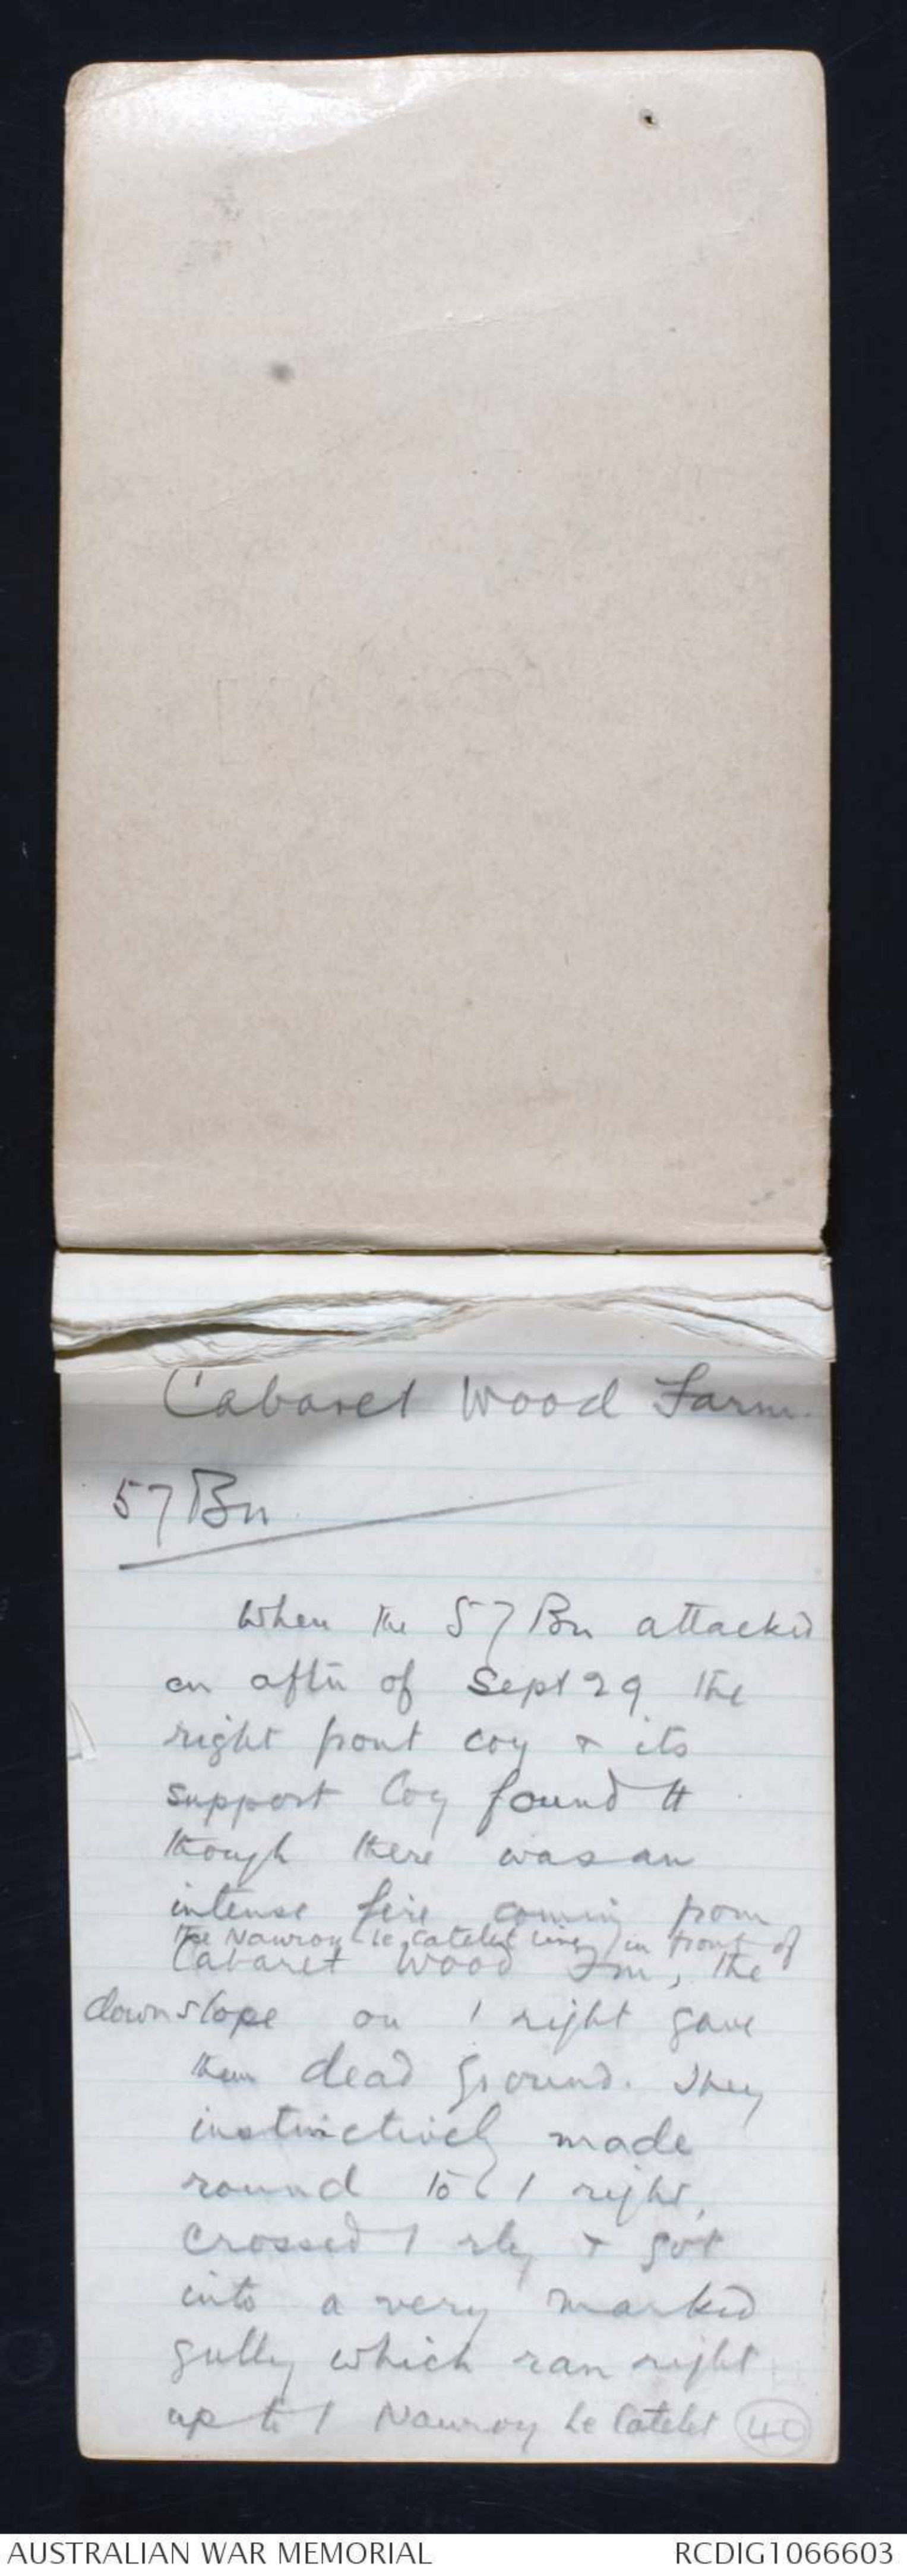 Cabaret Wood Farm.
57 Bn
When the 57 Bn attacked
on aftn of Sept 29 the
right front coy & its
support Coy found tt
though there was an
intense fire coming from
the Nauroy-le Catelet line, in front of
Cabaret Wood Fm, the
downslope on / right gave
them dead ground. They
instinctively made
round to / right,
crossed / rly & got
into a very marked
gully which ran right
up to / Nauroy Le Catelet
40
AUSTRALIAN WAR MEMORIAL
RCDIG1066603